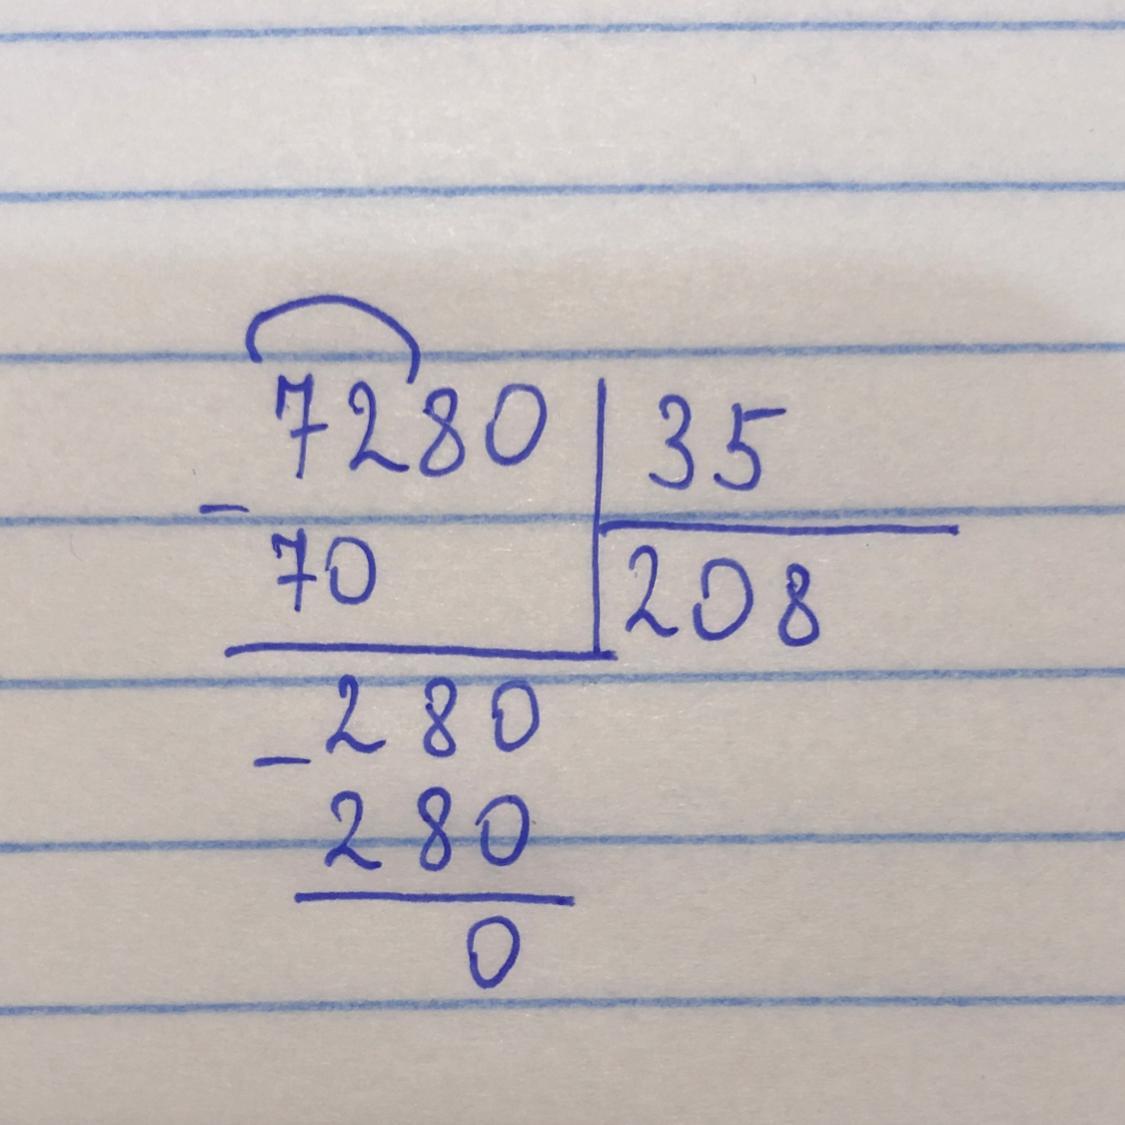 7280 35
- 70 208
- 280
280
0